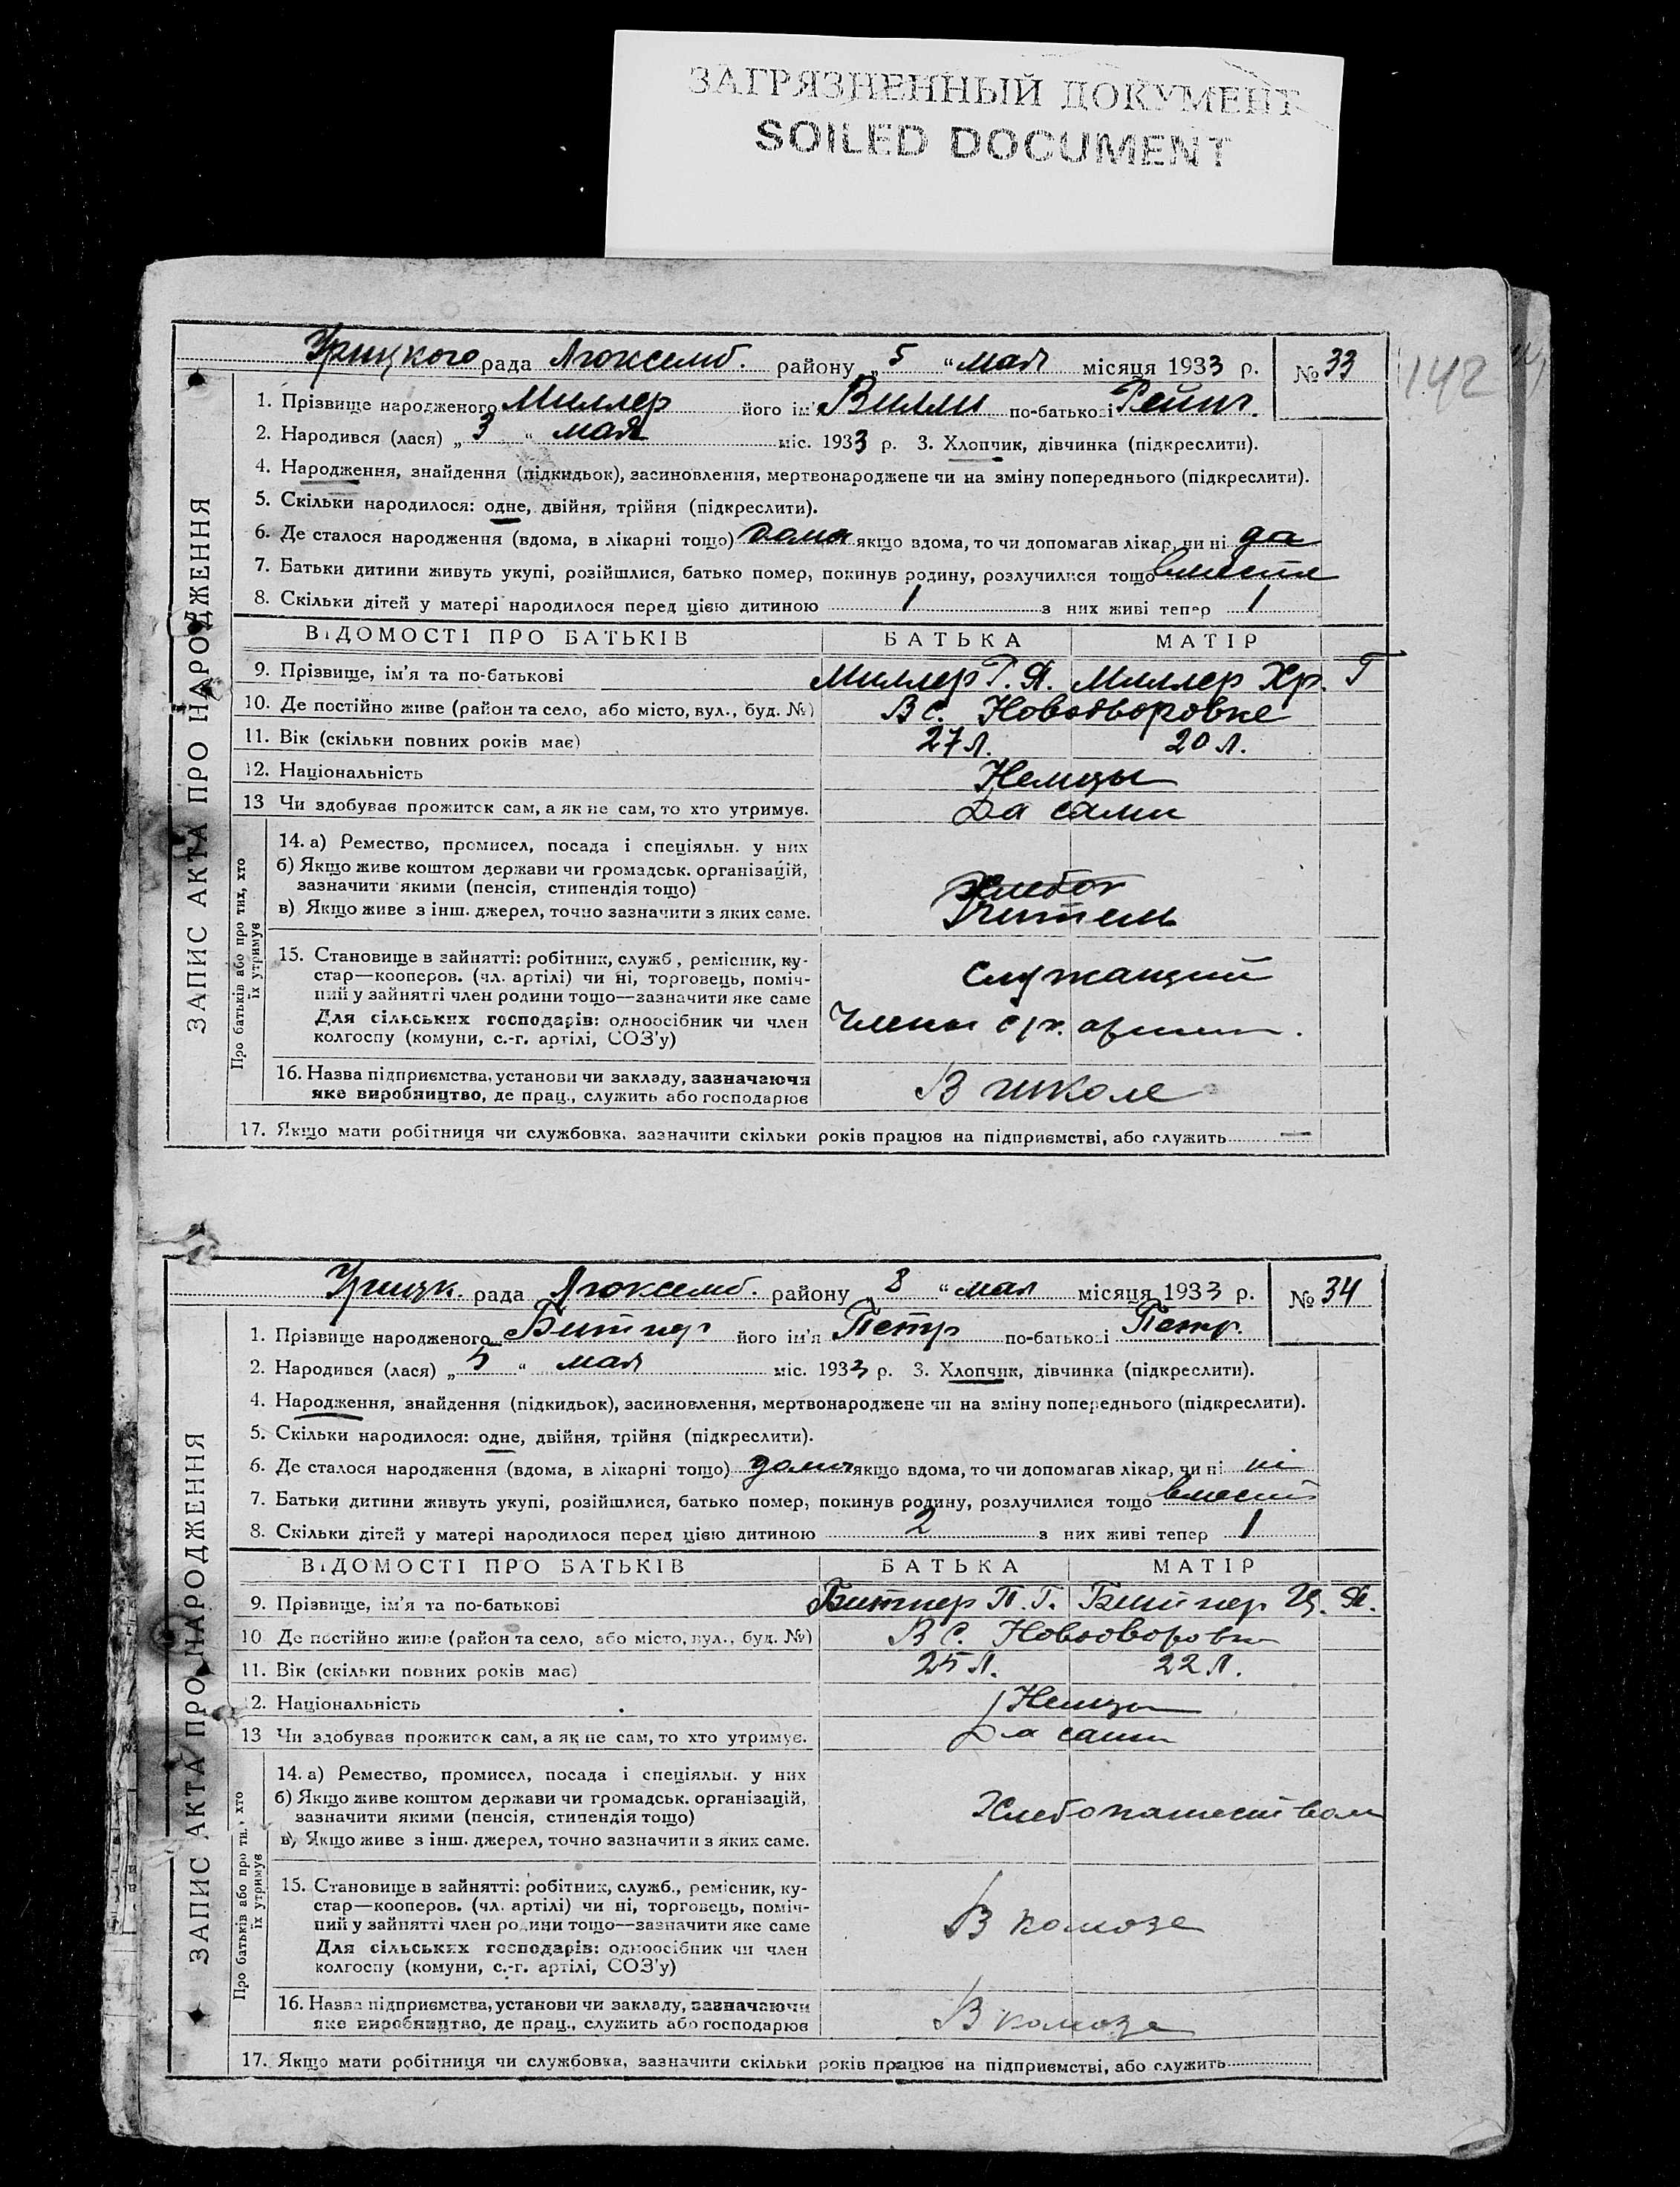 ЗАГРЯЗНЕННЫЙ ДОКУМЕНТ
SOILED DOCUMENT
142
Урицкого рада Люксемб. району „5“ мая місяця 1933 р. № 33
ЗАПИС АКТА ПРО НАРОДЖЕННЯ
1. Прізвище народженого Миллер його ім'я Вилли по-батькові Рейнг.
2. Народився (лася) „3“ мая міс. 1933 р. 3. Хлопчик, дівчинка (підкреслити).
4. Народження, знайдення (підкидьок), засиновлення, мертвонароджене чи на зміну попереднього (підкреслити).
5. Скільки народилося: одне, двійня, трійня (підкреслити).
6. Де сталося народження (вдома, в лікарні тощо) дома якщо вдома, то чи допомагав лікар, чи ні да
7. Батьки дитини живуть укупі, розійшлися, батько помер, покинув родину, розлучилися тощо вместе
8. Скільки дітей у матері народилося перед цією дитиною 1 з них живі тепер 1
ВІДОМОСТІ ПРО БАТЬКІВ БАТЬКА МАТІР
9. Прізвище, ім'я та по-батькові Миллер Г. Я. Миллер Хр. Г
10. Де постійно живе (район та село, або місто, вул., буд. №) В с. Новодворовке
11. Вік (скільки повних років має) 27 л. 20 л.
12. Національність Немцы
13 Чи здобував прожиток сам, а як не сам, то хто утримує. Да сами
Про батьків або про тих, хто їх утримує
14. а) Ремество, промисел, посада і спеціяльн. у них
б) Якщо живе коштом держави чи громадськ. організацій,
зазначити якими (пенсія, стипендія тощо) Хлебоп
в) Якщо живе з інш. джерел, точно зазначити з яких саме. Учитель
15. Становище в зайнятті: робітник, служб., ремісник, ку-
стар—кооперов. (чл. артілі) чи ні, торговець, поміч- Служащий
ний у зайнятті член родини тощо—зазначити яке саме
Для сільських господарів: одноосібник чи член Члены с/х. артели.
колгоспу (комуни, с.-г. артілі, СОЗ'у)
16. Назва підприємства, установи чи закладу, зазначаючи В школе
яке виробництво, де прац., служить або господарює
17. Якщо мати робітниця чи службовка, зазначити скільки років працює на підприємстві, або служить —
Урицк рада Люксемб. району „8“ мая місяця 1933 р. № 34
ЗАПИС АКТА ПРО НАРОДЖЕННЯ
1. Прізвище народженого Битнер його ім'я Петр по-батькові Петр.
2. Народився (лася) „5“ мая міс. 1933 р. 3. Хлопчик, дівчинка (підкреслити).
4. Народження, знайдення (підкидьок), засиновлення, мертвонароджене чи на зміну попереднього (підкреслити).
5. Скільки народилося: одне, двійня, трійня (підкреслити).
6. Де сталося народження (вдома, в лікарні тощо) дома якщо вдома, то чи допомагав лікар, чи ні ні
7. Батьки дитини живуть укупі, розійшлися, батько помер, покинув родину, розлучилися тощо вместе
8. Скільки дітей у матері народилося перед цією дитиною 2 з них живі тепер 1
ВІДОМОСТІ ПРО БАТЬКІВ БАТЬКА МАТІР
9. Прізвище, ім'я та по-батькові Битнер П. Г. Битнер Я.
10 Де постійно живе (район та село, або місто, вул., буд. №) В с. Новодворовке
11. Вік (скільки повних років має) 25 л. 22 л.
12. Національність Немцы
13 Чи здобував прожиток сам, а як не сам, то хто утримує. Да сами
Про батьків або про тих, хто їх утримує
14. а) Ремество, промисел, посада і спеціяльн. у них
б) Якщо живе коштом держави чи громадськ. організацій, Хлебопашеством
зазначити якими (пенсія, стипендія тощо)
в) Якщо живе з інш. джерел, точно зазначити з яких саме.
15. Становище в зайнятті: робітник, служб., ремісник, ку-
стар—кооперов. (чл. артілі) чи ні, торговець, поміч-
ний у зайнятті член родини тощо—зазначити яке саме В колхозе
Для сільських господарів: одноосібник чи член
колгоспу (комуни, с.-г. артілі, СОЗ'у)
16. Назва підприємства, установи чи закладу, зазначаючи В колхозе
яке виробництво, де прац., служить або господарює
17. Якщо мати робітниця чи службовка, зазначити скільки років працює на підприємстві, або служить